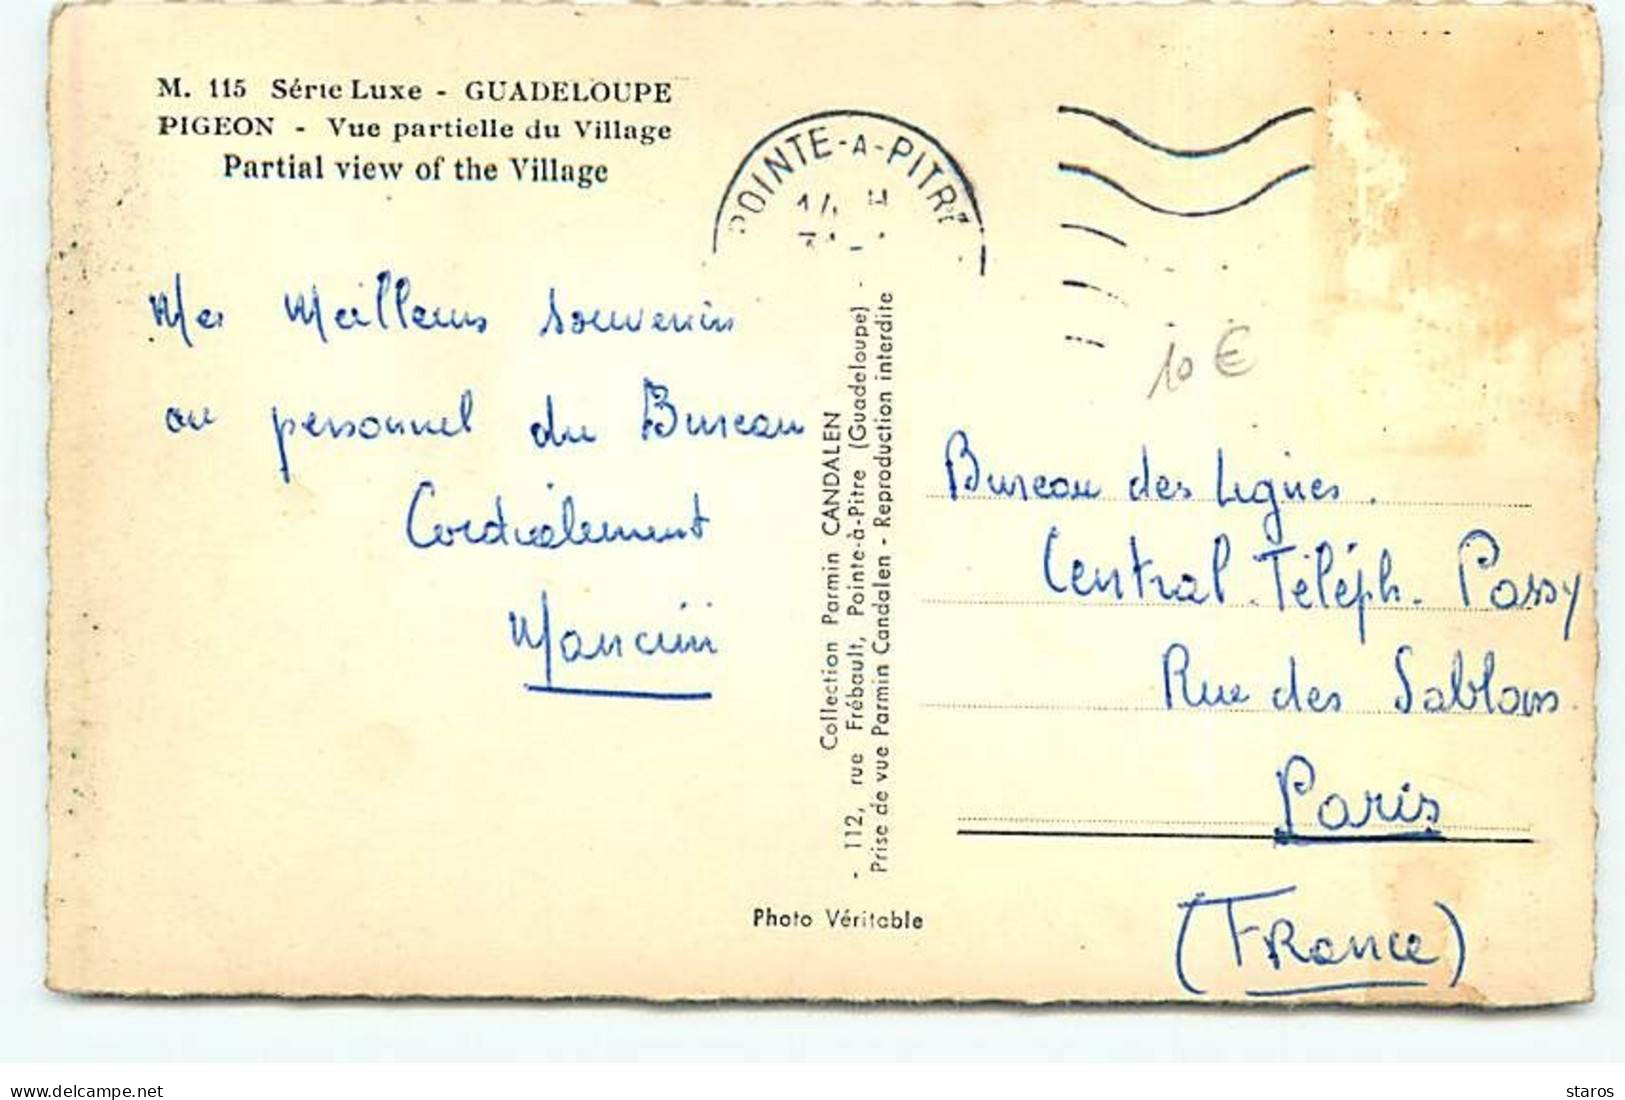 M. 115 Série Luxe - GUADELOUPE
PIGEON - Vue partielle du Village
Partial view of the Village
POINTE-A-PITRE
14 H
Mes Meilleurs souvenirs
au personnel du Bureau
Cordialement
Mancini
Collection Parmin CANDALEN
- 112, rue Frébault, Pointe-à-Pitre (Guadeloupe) -
Prise de vue Parmin Candalen - Reproduction interdite
Photo Véritable
10 €
Bureau des Lignes.
Central Téléph. Passy
Rue des Sablons.
Paris
(France)
www.delcampe.net
staros